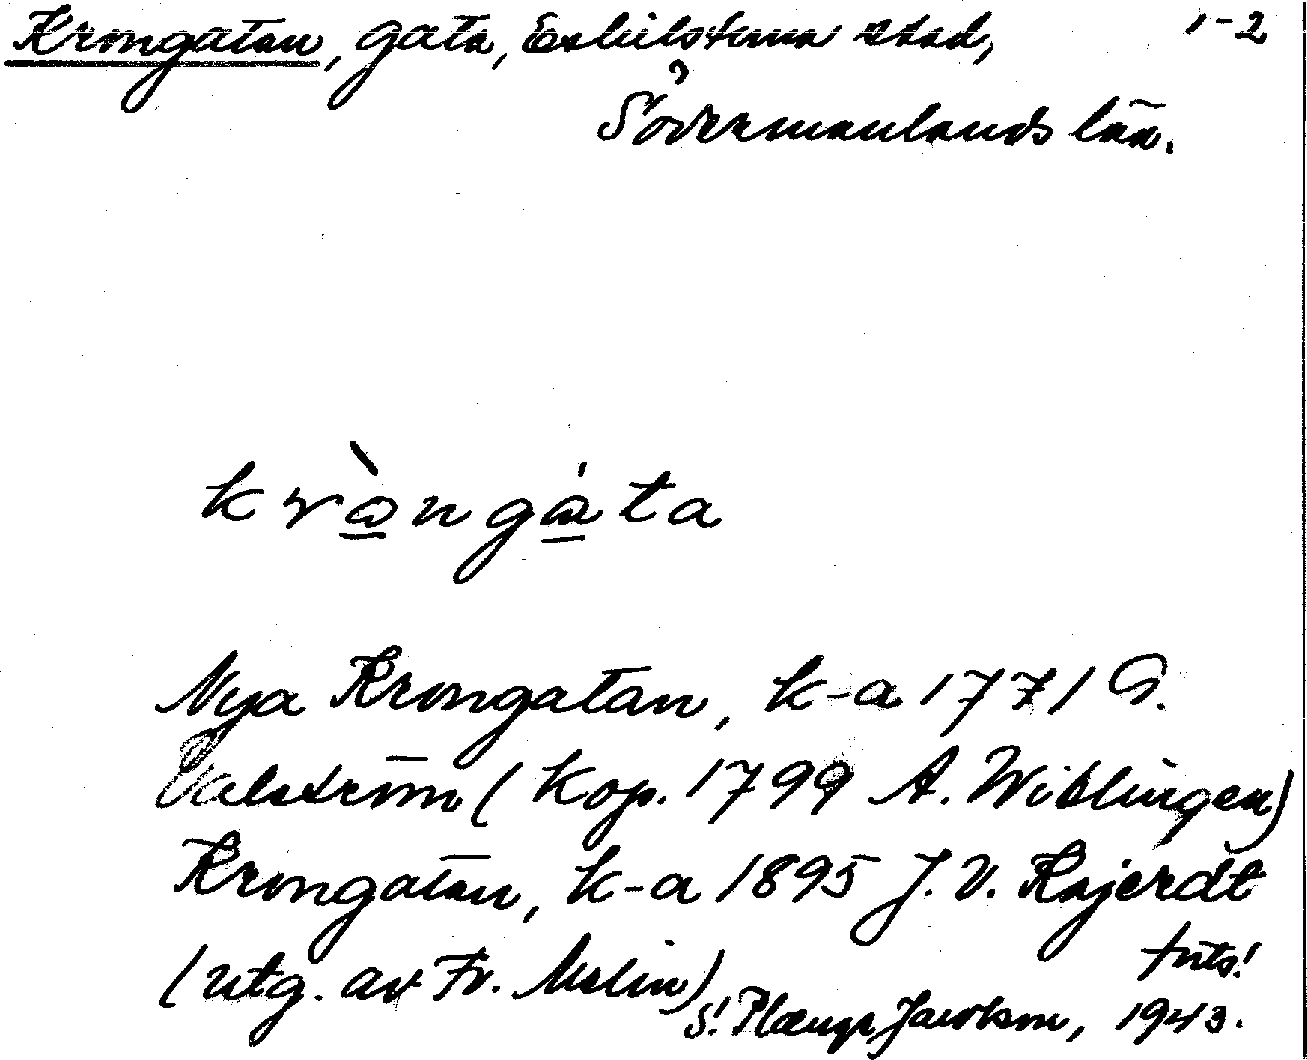 Krongatan, gata, Eskilstuna stad, 1-2
Södermanlands län.
kròngàta
Nya Krongatan, k-a 1771 G.
Valström (kop. 1799 A. Wiblingen)
Krongatan, k-a 1895 J. V.
(utg. av Fr. Melin) forts!
S! Jacobson, 1943.